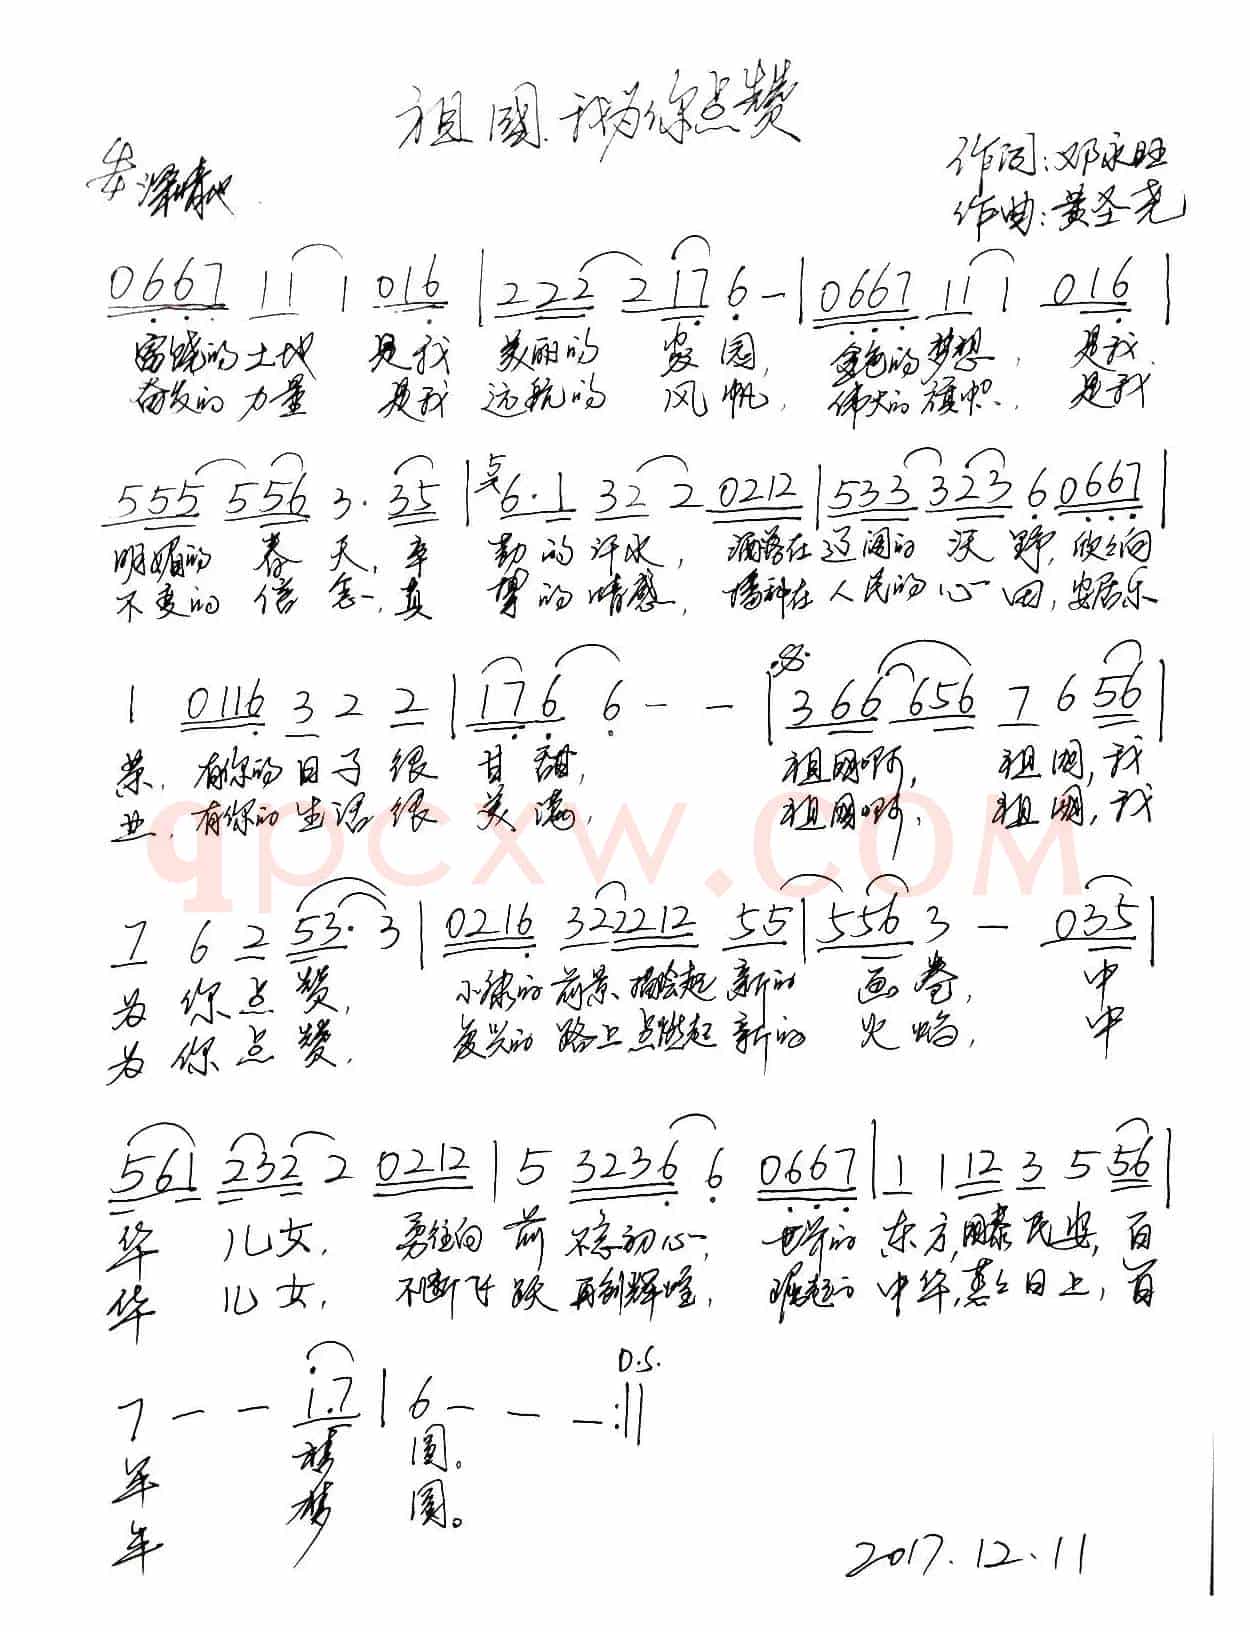 祖國,我为你点赞
深情地
作词:邓永旺
作曲:黄圣尧
0667 11 1 016 | 222 2 17 6 - | 0667 11 1 016 |
富饶的土地 是我 美丽的 家园, 金色的梦想, 是我
奋发的力量 是我 远航的 风帆, 伟大的旗帜, 是我
555 556 3· 35 | 5 6·1 32 2 0212 | 533 323 6 0667 |
明媚的 春天, 辛 勤的汗水, 洒落在 辽阔的 沃野, 欣欣向
不变的 信念, 真 挚的情感, 播种在 人民的心田, 安居乐
1 0116 3 2 2 | 176 6 - - | 366 656 7 6 56 |
荣, 有你的日子很 甘甜, 祖国啊, 祖国, 我
业, 有你的生活很 美满, 祖国啊, 祖国, 我
qpcxw.COM
7 6 2 53· 3 | 0216 322212 55 | 556 3 - 035 |
为你点赞, 小康的 前景 描绘起 新的 画卷, 中
为你点赞, 复兴的 路上 点燃起 新的 火焰, 中
561 232 2 0212 | 5 3236 6 0667 | 1 1 12 3 5 56 |
华 儿女, 勇往向前 不忘初心, 世界的 东方, 国泰民安, 百
华 儿女, 不断飞跃 再创辉煌, 崛起的 中华, 蒸蒸日上, 百
D.S.
7 - - 1.7 | 6 - - - :||
年 梦 圆。
年 梦 圆。
2017.12.11